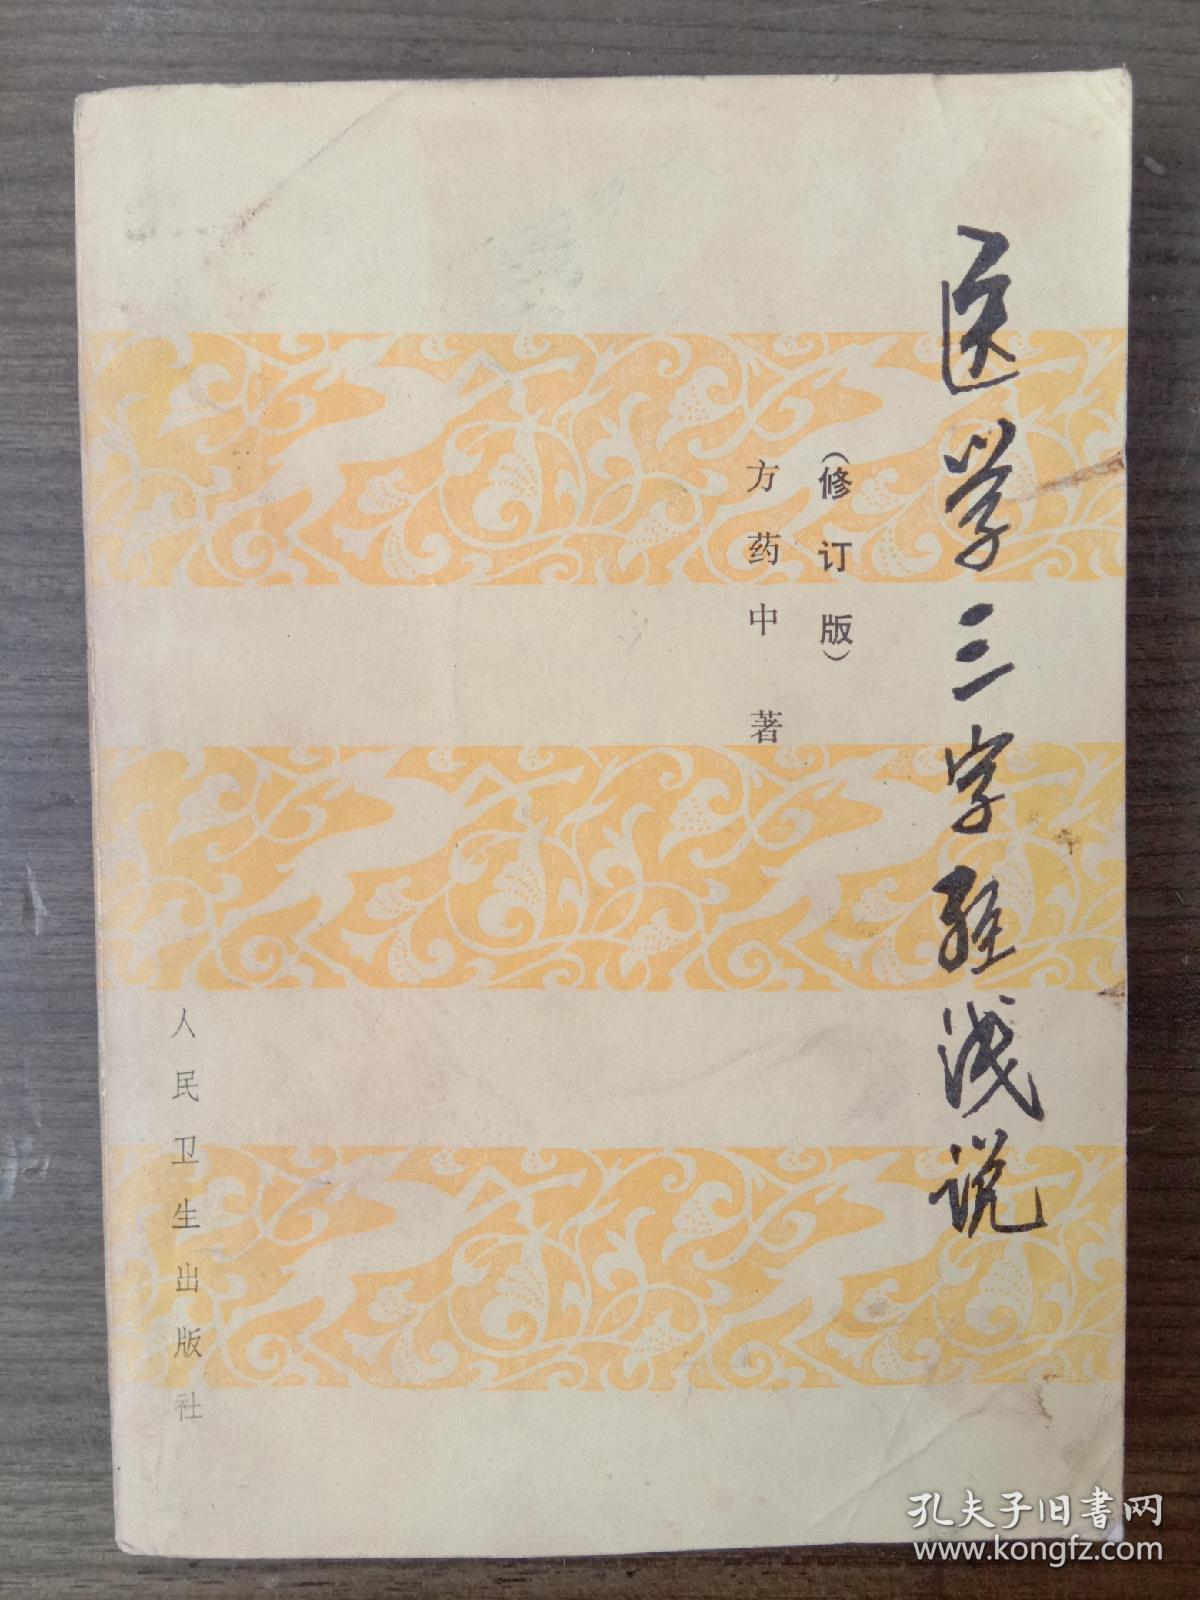 医学三字经浅说
（修订版）
方药中 著
人民卫生出版社
孔夫子旧书网
www.kongfz.com